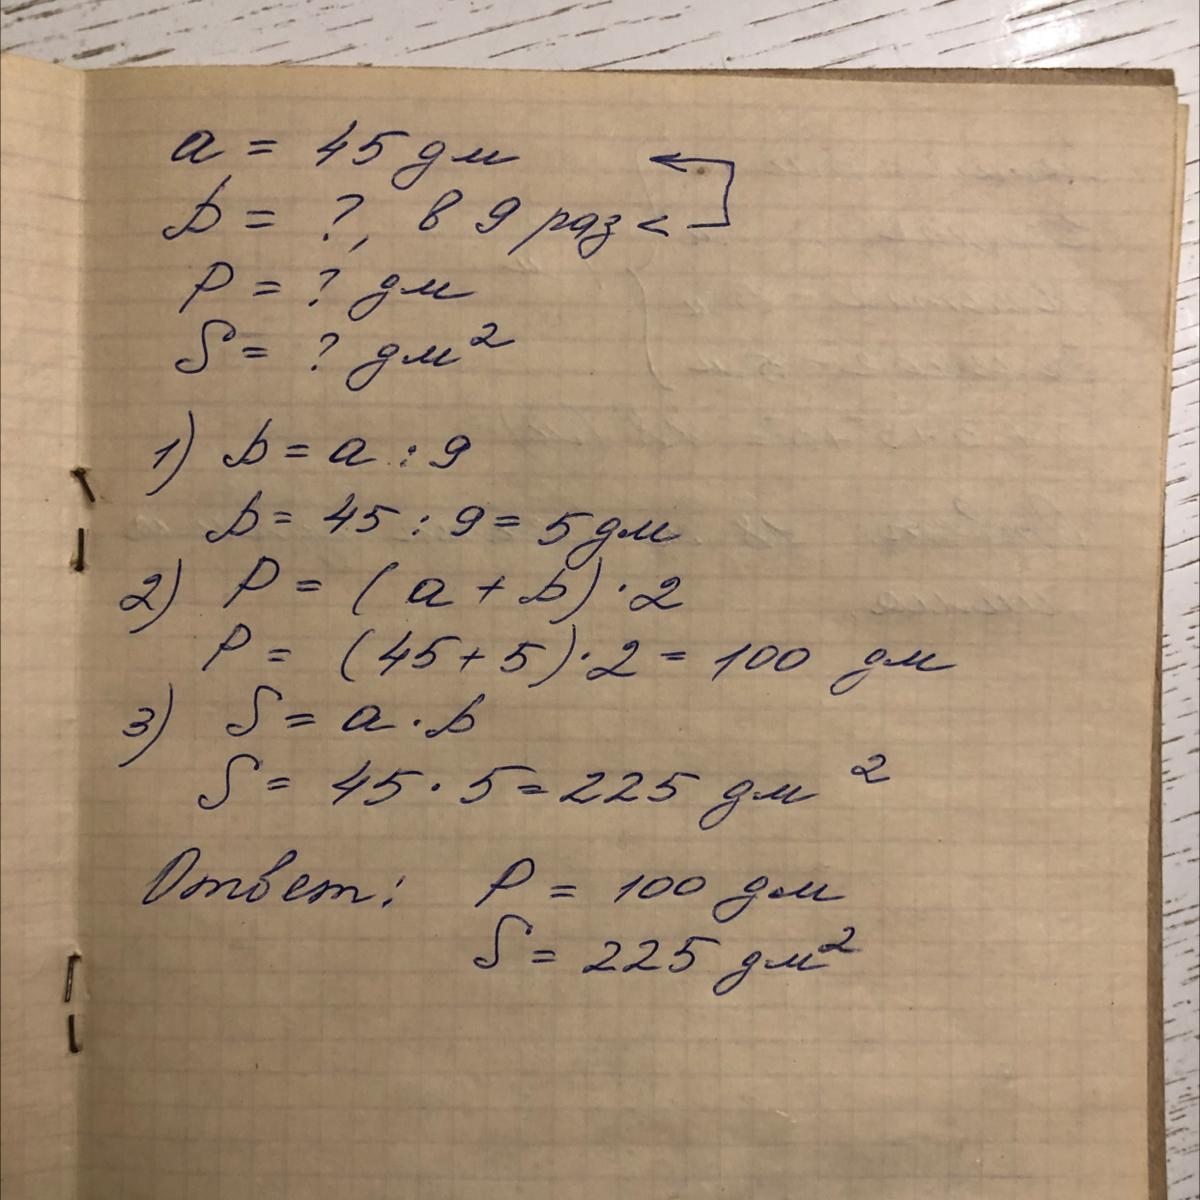 a = 45 дм
b = ?, в 9 раз <
P = ? дм
S = ? дм²
1) b = a : 9
b = 45 : 9 = 5 дм
2) P = (a + b) · 2
P = (45 + 5) · 2 = 100 дм
3) S = a · b
S = 45 · 5 = 225 дм²
Ответ: P = 100 дм
S = 225 дм²